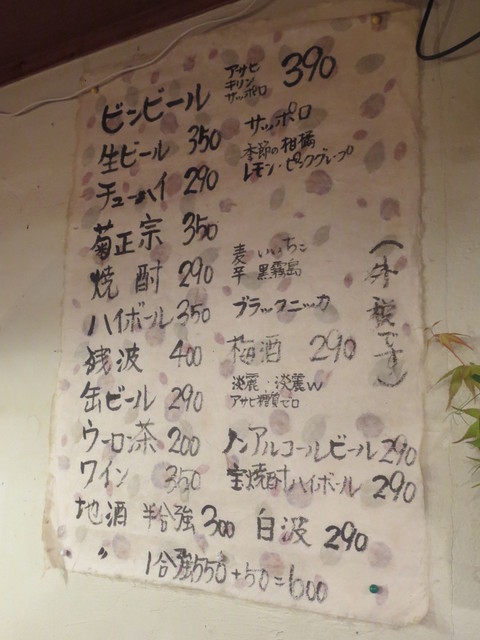 ビンビール アサヒ キリン サッポロ 390
生ビール 350 サッポロ
チューハイ 290 季節の柑橘
レモン・ピンクグレープ
菊正宗 350
焼酎 290 麦 いいちこ
芋 黒霧島
ハイボール 350 ブラックニッカ
残波 400 梅酒 290
缶ビール 290 淡麗・淡麗W
アサヒ糖質ゼロ
ウーロン茶 200 ノンアルコールビール 290
ワイン 350 宝焼酎ハイボール 290
地酒 半合強 300 白波 290
〃 1合強 550+50=600
(外税です)